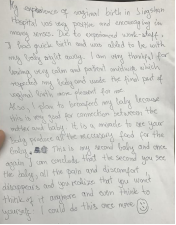 My experience of vaginal birth in Singleton
Hospital was very positive and encouraging in
many senses. Due to experienced work-staff,
I had quick birth and was able to be with
my baby straight away. I am very thankful for
having very calm and patient midwife which
my body and made the final part of
vaginal birth more pleasant for me.
Also I plan to breastfeed my baby because
this is very good for connection between the
mother and baby. It is a miracle to see your
body produce all the necessary food for the
baby. This is my second baby and once
again I can conclude that the second you see
the baby, all the pain and discomfort
disappears and you realize that you won't
think of it anymore and even think to
yourself. I could do this once more ☺